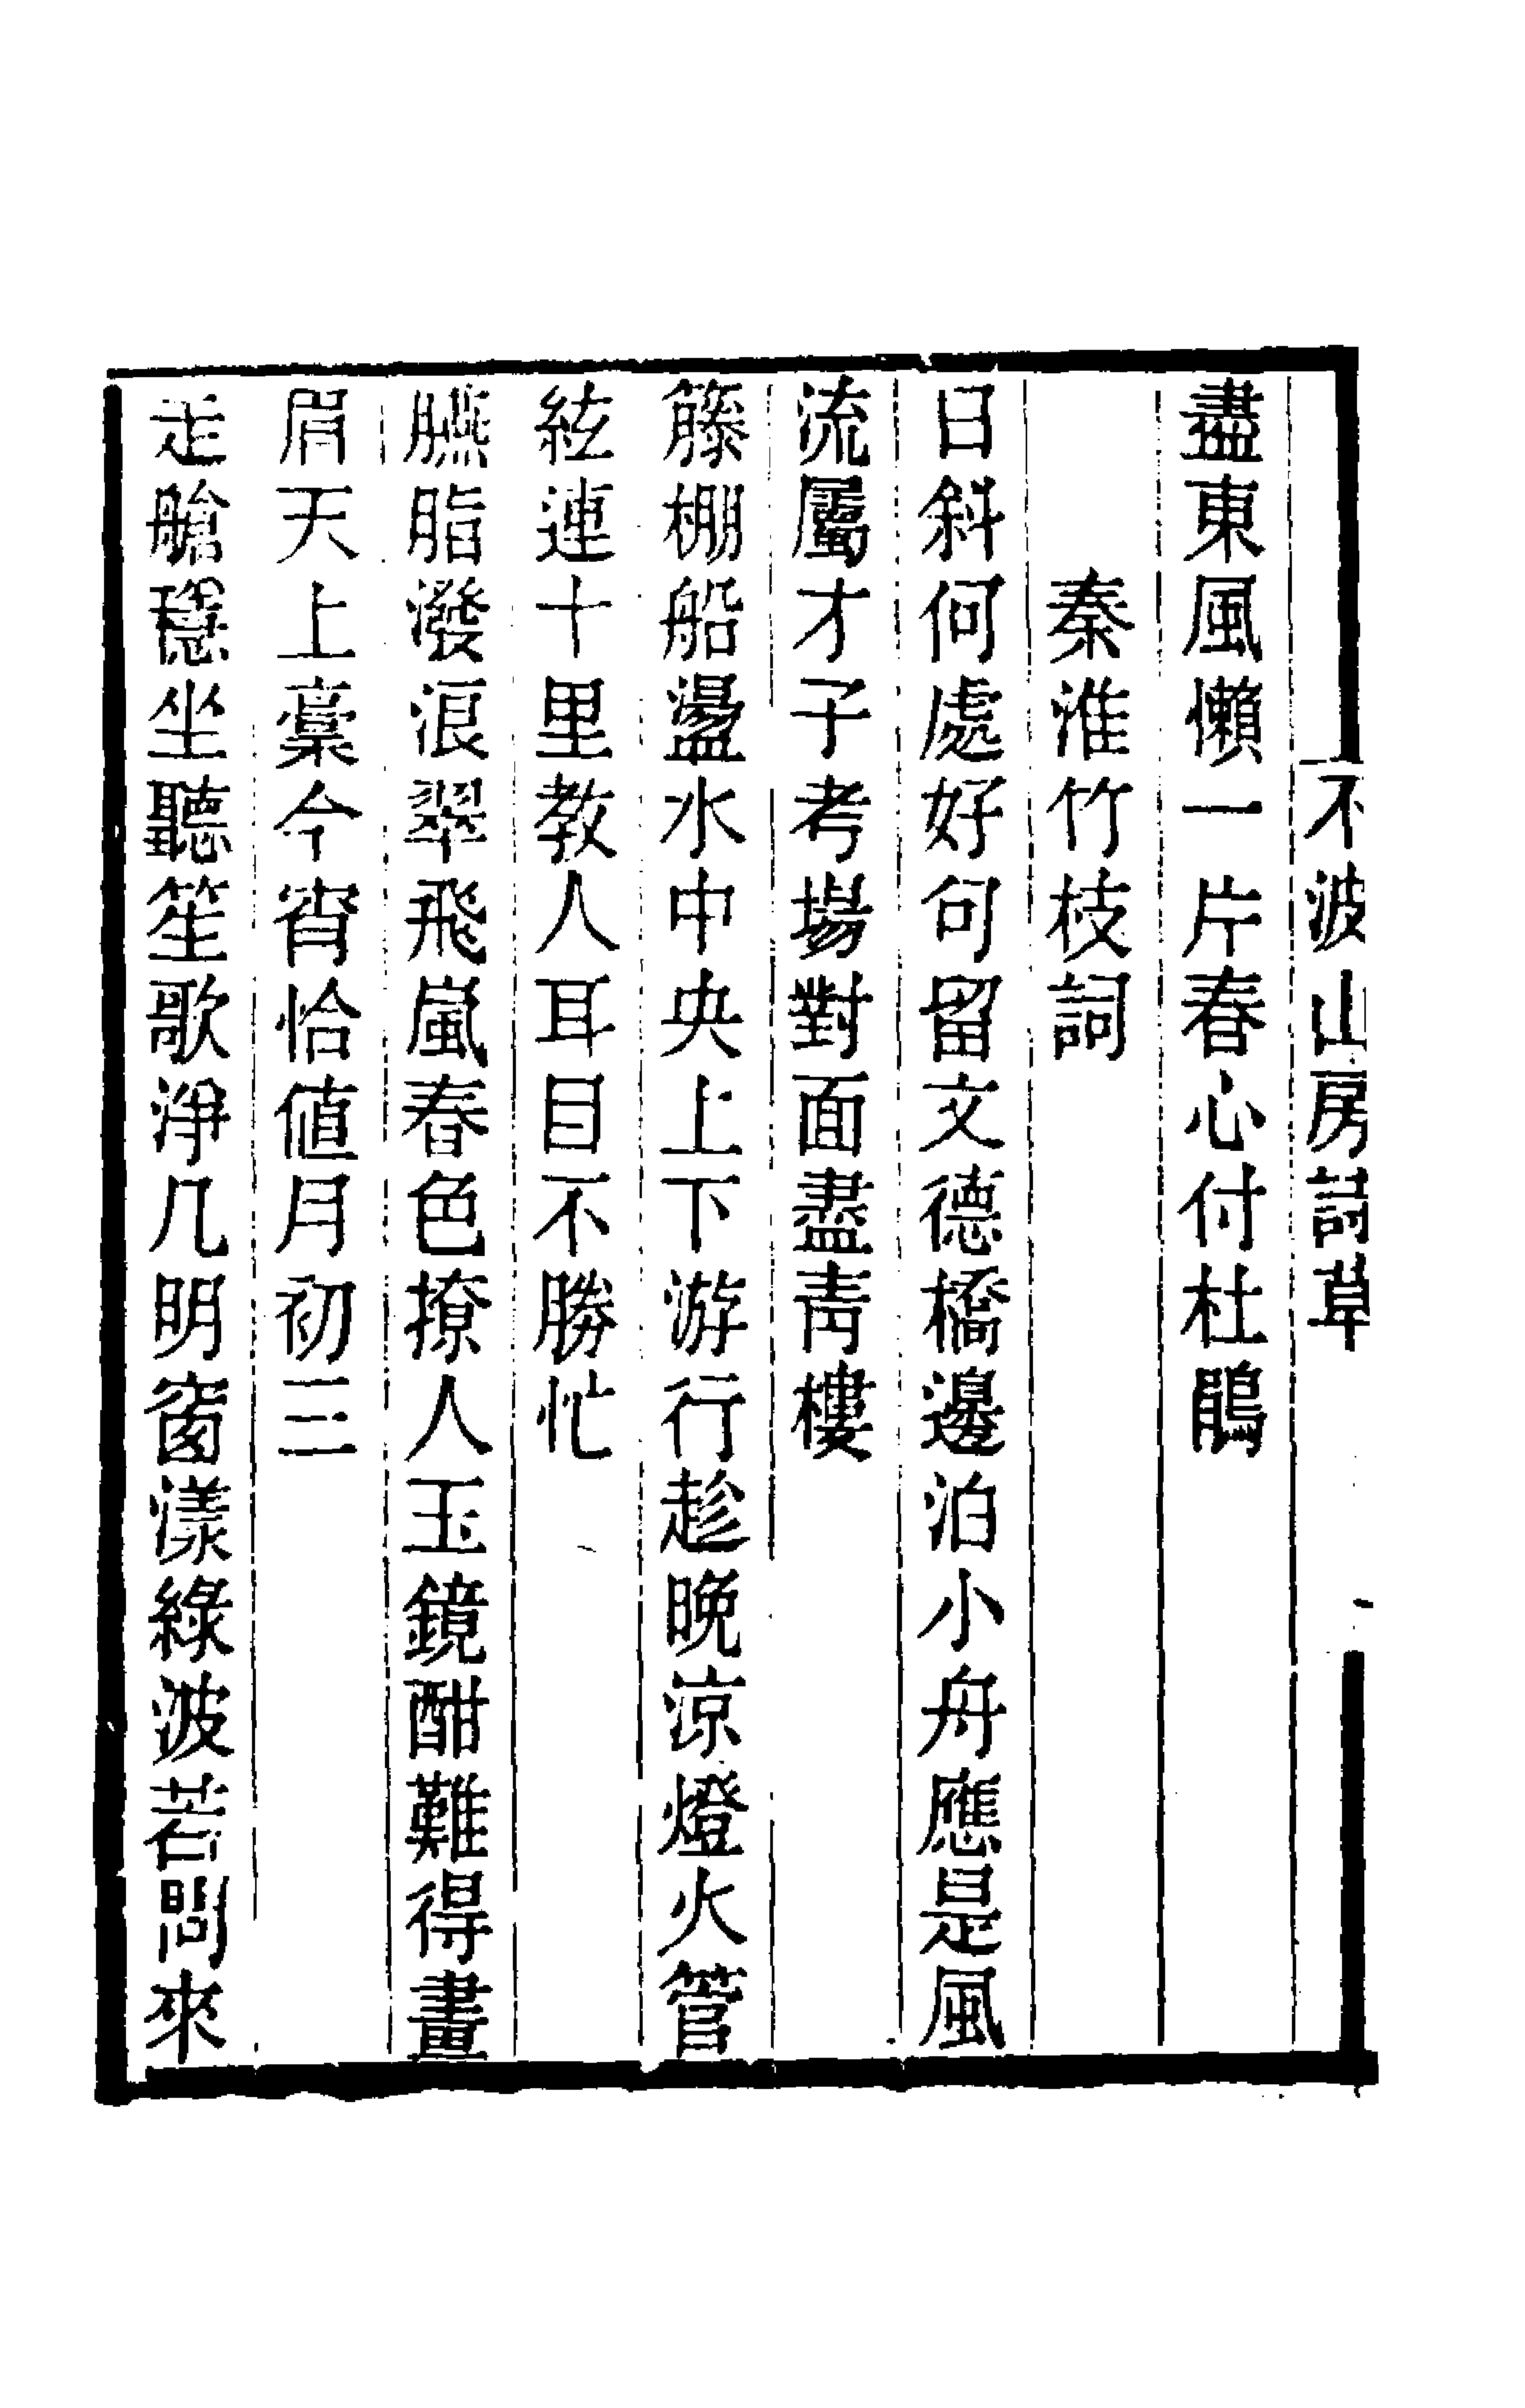 不波山房詩草
盡東風懶一片春心付杜鵑
秦淮竹枝詞
日斜何處好句留文德橋邊泊小舟應是風
流屬才子考場對面盡靑樓
籐棚船盪水中央上下游行趁晚涼燈火管
絃連十里教人耳目不勝忙
臙脂潑浪翠飛嵐春色撩人玉鏡酣難得畫
眉天上稾今宵恰値月初三
走艙穩坐聽笙歌淨几明窗漾綠波若問來